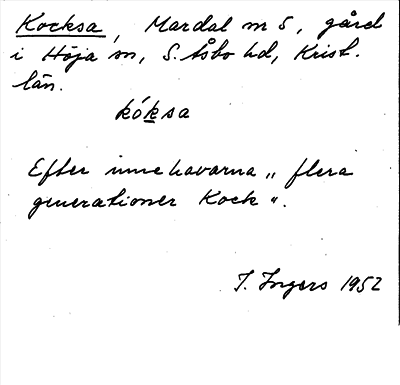 Kocksa, Mardal nr 5, gård
i Höja sn, S. Åsbo hd, Krist.
län.
kóksa
Efter innehavarna „flera
generationer Kock".
I. Ingers 1952